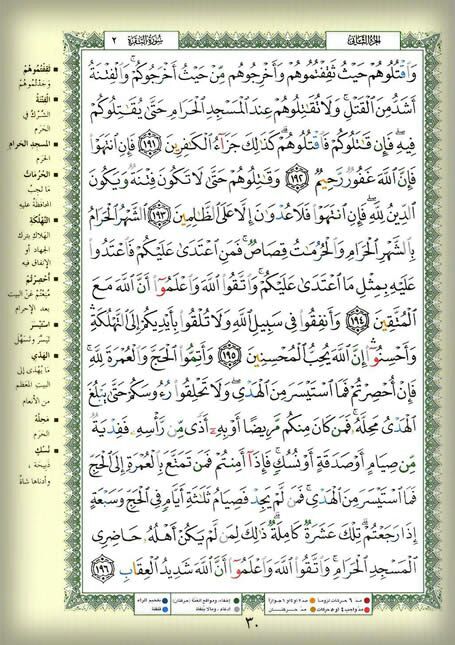 الجزء الثاني
سورة البقرة ٢
وَاقْتُلُوهُمْ حَيْثُ ثَقِفْتُمُوهُمْ وَأَخْرِجُوهُم مِّنْ حَيْثُ أَخْرَجُوكُمْ ۚ وَالْفِتْنَةُ
أَشَدُّ مِنَ الْقَتْلِ ۚ وَلَا تُقَاتِلُوهُمْ عِندَ الْمَسْجِدِ الْحَرَامِ حَتَّىٰ يُقَاتِلُوكُمْ
فِيهِ ۖ فَإِن قَاتَلُوكُمْ فَاقْتُلُوهُمْ ۗ كَذَٰلِكَ جَزَاءُ الْكَافِرِينَ ﴿١٩١﴾ فَإِنِ انتَهَوْا
فَإِنَّ اللَّهَ غَفُورٌ رَّحِيمٌ ﴿١٩٢﴾ وَقَاتِلُوهُمْ حَتَّىٰ لَا تَكُونَ فِتْنَةٌ وَيَكُونَ
الدِّينُ لِلَّهِ ۖ فَإِنِ انتَهَوْا فَلَا عُدْوَانَ إِلَّا عَلَى الظَّالِمِينَ ﴿١٩٣﴾ الشَّهْرُ الْحَرَامُ
بِالشَّهْرِ الْحَرَامِ وَالْحُرُمَاتُ قِصَاصٌ ۚ فَمَنِ اعْتَدَىٰ عَلَيْكُمْ فَاعْتَدُوا
عَلَيْهِ بِمِثْلِ مَا اعْتَدَىٰ عَلَيْكُمْ ۚ وَاتَّقُوا اللَّهَ وَاعْلَمُوا أَنَّ اللَّهَ مَعَ
الْمُتَّقِينَ ﴿١٩٤﴾ وَأَنفِقُوا فِي سَبِيلِ اللَّهِ وَلَا تُلْقُوا بِأَيْدِيكُمْ إِلَى التَّهْلُكَةِ ۛ
وَأَحْسِنُوا ۛ إِنَّ اللَّهَ يُحِبُّ الْمُحْسِنِينَ ﴿١٩٥﴾ وَأَتِمُّوا الْحَجَّ وَالْعُمْرَةَ لِلَّهِ ۚ
فَإِنْ أُحْصِرْتُمْ فَمَا اسْتَيْسَرَ مِنَ الْهَدْيِ ۖ وَلَا تَحْلِقُوا رُءُوسَكُمْ حَتَّىٰ يَبْلُغَ
الْهَدْيُ مَحِلَّهُ ۚ فَمَن كَانَ مِنكُم مَّرِيضًا أَوْ بِهِ أَذًى مِّن رَّأْسِهِ فَفِدْيَةٌ
مِّن صِيَامٍ أَوْ صَدَقَةٍ أَوْ نُسُكٍ ۚ فَإِذَا أَمِنتُمْ فَمَن تَمَتَّعَ بِالْعُمْرَةِ إِلَى الْحَجِّ
فَمَا اسْتَيْسَرَ مِنَ الْهَدْيِ ۚ فَمَن لَّمْ يَجِدْ فَصِيَامُ ثَلَاثَةِ أَيَّامٍ فِي الْحَجِّ وَسَبْعَةٍ
إِذَا رَجَعْتُمْ ۗ تِلْكَ عَشَرَةٌ كَامِلَةٌ ۗ ذَٰلِكَ لِمَن لَّمْ يَكُنْ أَهْلُهُ حَاضِرِي
الْمَسْجِدِ الْحَرَامِ ۚ وَاتَّقُوا اللَّهَ وَاعْلَمُوا أَنَّ اللَّهَ شَدِيدُ الْعِقَابِ ﴿١٩٦﴾
ثَقِفْتُمُوهُمْ
وَجَدْتُمُوهُمْ
الْفِتْنَةُ
الشِّرْكُ فِي
الحَرَمِ
المسجدِ الحرامِ
الحَرَمِ
الْحُرُمَاتُ
مَا تَجِبُ
المحافظةُ عليهِ
التَّهْلُكَةِ
الهلاكِ بتركِ
الجهادِ أو
الإنفاقِ فيهِ
أُحْصِرْتُمْ
مُنِعْتُمْ عَنِ البيتِ
بعد الإحرامِ
اسْتَيْسَرَ
تَيَسَّرَ وتَسَهَّلَ
الهَدْيِ
مَا يُهْدَى إلى
البيتِ المعظَّمِ
من الأنعامِ
مَحِلَّهُ
الحَرَمَ
نُسُكٍ
ذَبِيحَةٍ،
وأدناها شاةٌ
مد ٦ حركات لزوماً
مد ٢ أو ٤ أو ٦ جوازاً
إخفاء، ومواقع الغنة (حركتان)
تفخيم الراء
مد واجب ٤ أو ٥ حركات
مد حركتان
ادغام، وما لا يلفظ
قلقلة
٣٠